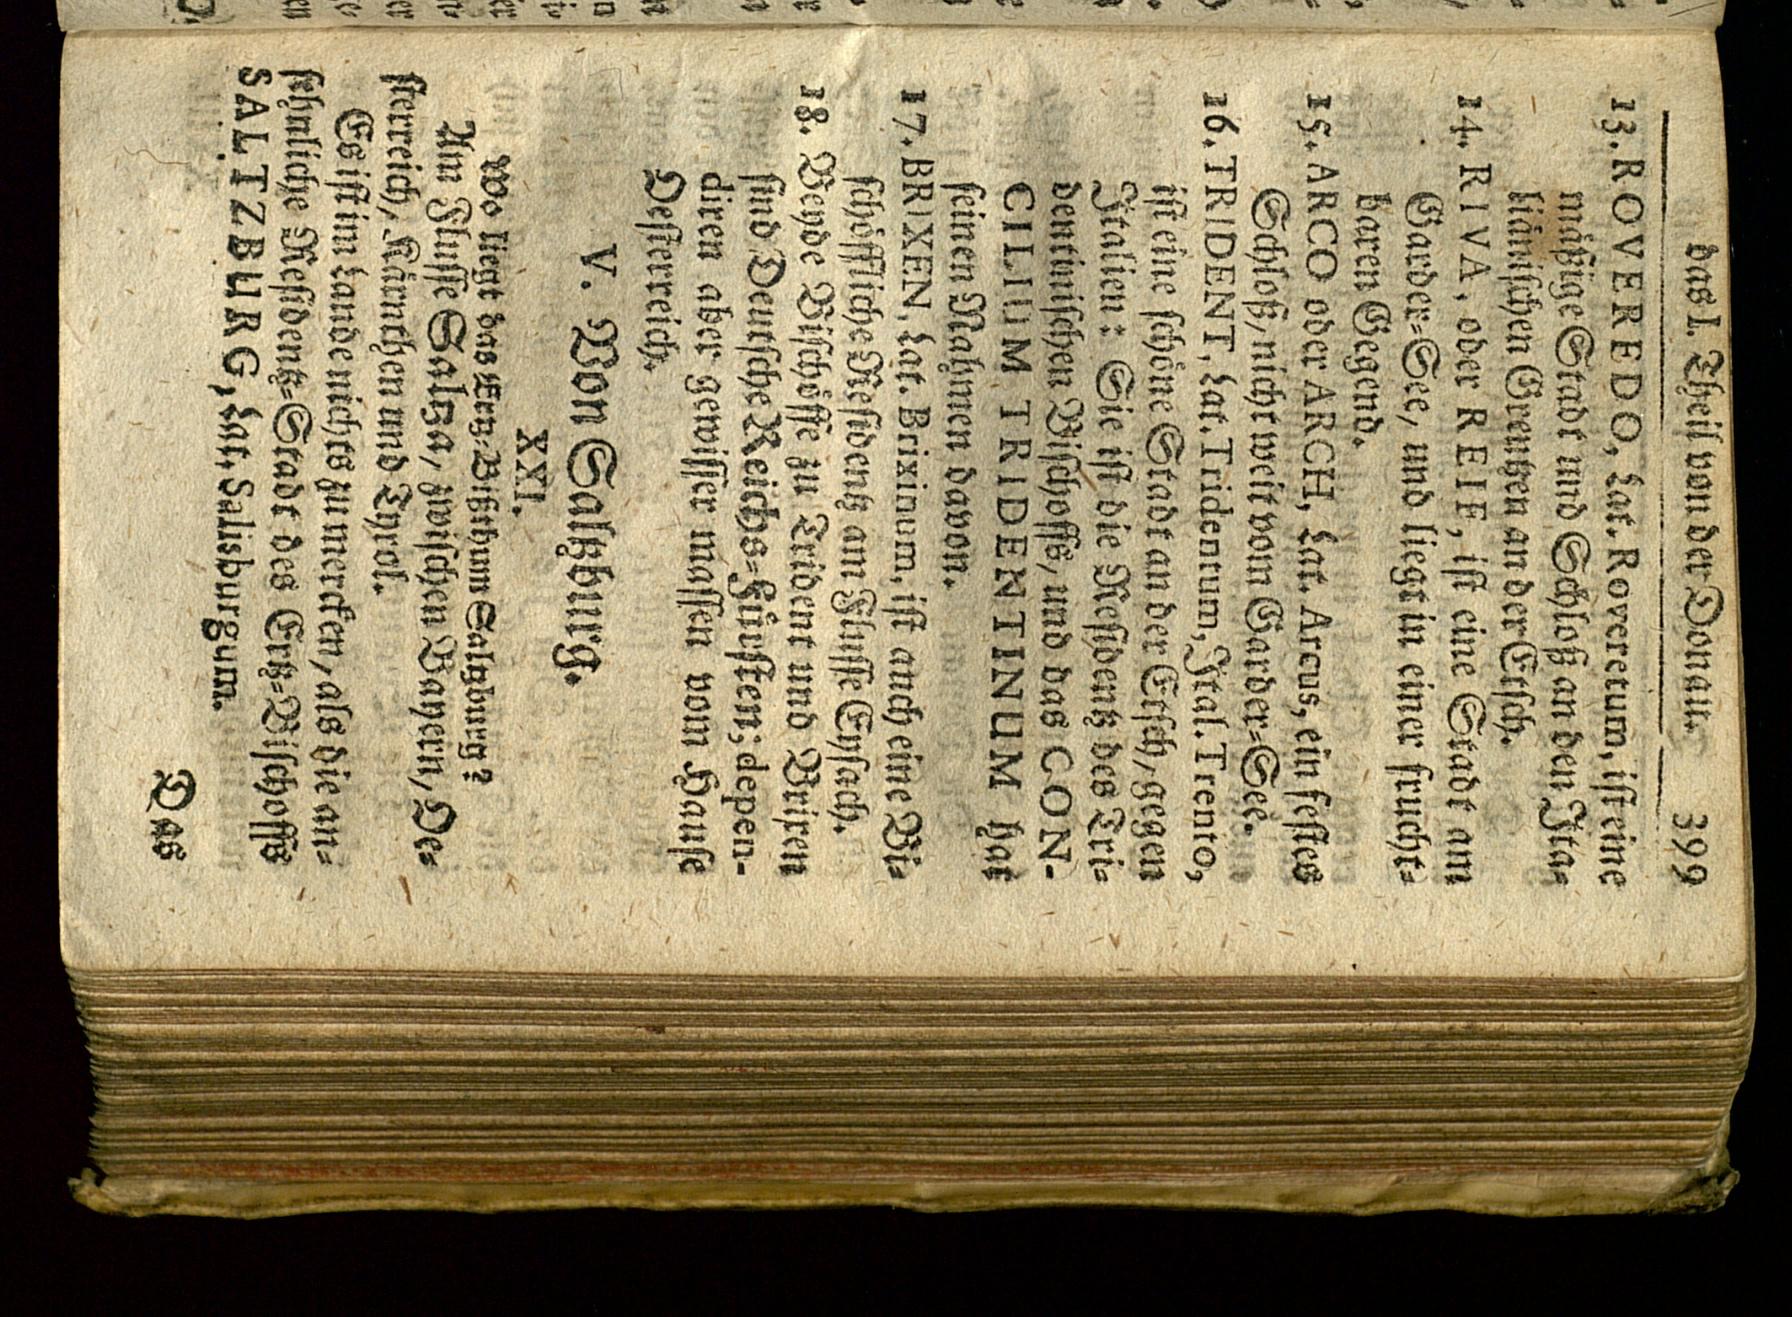 das I. Theil von der Donau. 399
13. ROVEREDO, Lat. Roveretum, ist eine
mäßige Stadt und Schloß an den Ita-
liänischen Grentzen an der Etsch.
14. RIVA, oder REIF, ist eine Stadt am
Garder-See, und liegt in einer frucht-
baren Gegend.
15. ARCO oder ARCH, Lat. Arcus, ein festes
Schloß, nicht weit vom Garder-See.
16. TRIDENT, Lat. Tridentum, Ital. Trento,
ist eine schöne Stadt an der Etsch, gegen
Italien: Sie ist die Residentz des Tri-
dentinischen Bischoffs, und das CON-
CILIUM TRIDENTINUM hat
seinen Nahmen davon.
17. BRIXEN, Lat. Brixinum, ist auch eine Bi-
schöffliche Residentz am Flusse Eysach.
18. Beyde Bischöffe zu Trident und Brixen
sind Deutsche Reichs-Fürsten; depen-
diren aber gewisser massen vom Hause
Oesterreich.
V. Von Saltzburg.
XXI.
Wo liegt das Ertz-Bißthum Saltzburg?
Am Flusse Saltza, zwischen Bayern, Oe-
sterreich, Kärnthen und Tyrol.
Es ist im Lande nichts zu mercken, als die an-
sehnliche Residentz-Stadt des Ertz-Bischoffs
SALTZBURG, Lat. Salisburgum.
Das